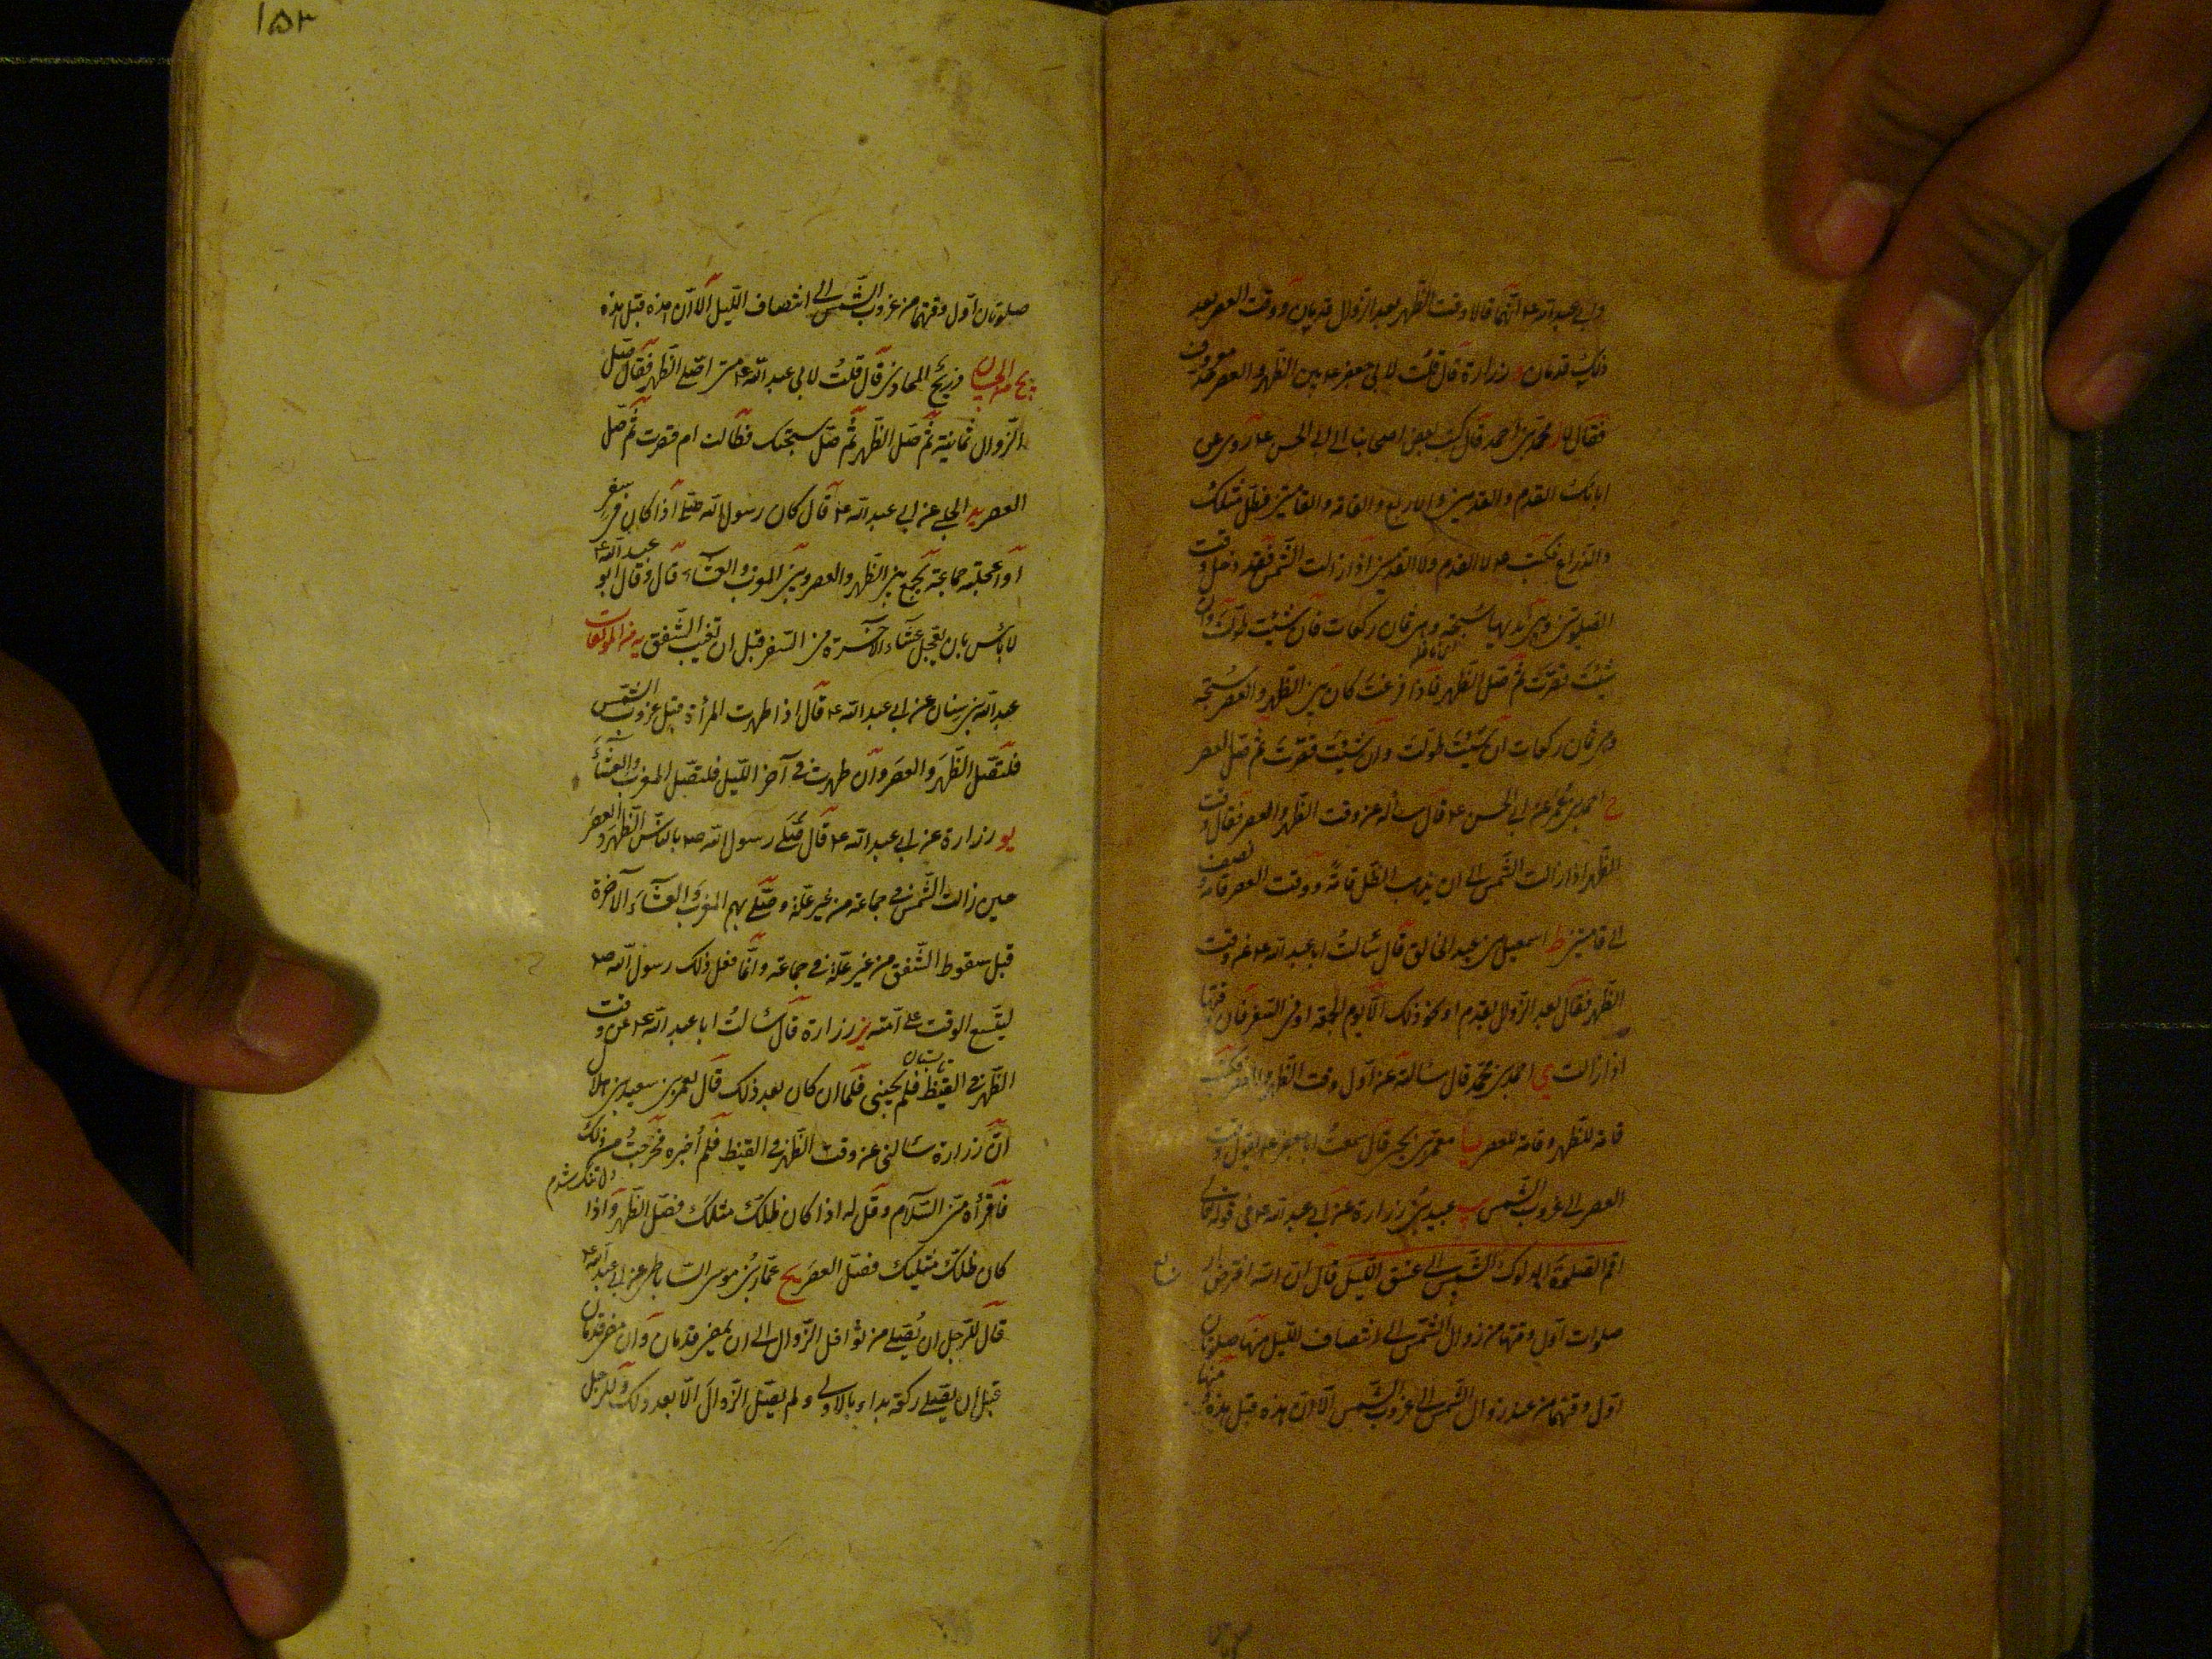 وابي عبد الله ع انهما قالا وقت الظهر بعد الزوال قدمان ووقت العصر بعد
ذلك قدمان و زرارة قال قلت لابي جعفر ع بين الظهر والعصر حد معروف
فقال لا ز محمد بن احمد قال كتب بعض اصحابنا الى ابي الحسن ع روى عن
ابائك القدم والقدمين والاربع والقامة والقامتين وظل مثلك
والذراع فكتب ع لا القدم ولا القدمين اذا زالت الشمس فقد دخل وقت
الصلوتين وبين يديها سبحة وهي ثمان ركعات فان شئت طولت وان
شئت قصرت ثم صل الظهر فاذا فرغت كان بين الظهر والعصر سبحة
وهي ثمان ركعات ان شئت طولت وان شئت قصرت ثم صل العصر
ح احمد بن محمد عن ابي الحسن ع قال سألته عن وقت الظهر والعصر فقال وقت
الظهر اذا زالت الشمس الى ان يذهب الظل قامة ووقت العصر قامة ونصف
الى قامتين ط اسمعيل بن عبد الخالق قال سألت ابا عبد الله ع عن وقت
الظهر فقال بعد الزوال بقدم او نحو ذلك الا يوم الجمعة او في السفر فان وقتها
اذا زالت ي احمد بن محمد قال سألته عن اول وقت الظهر والعصر فكتب
قامة للظهر وقامة للعصر يا معمر بن يحيى قال سمعت ابا جعفر ع يقول وقت
العصر الى غروب الشمس يب عبيد بن زرارة عن ابي عبد الله ع في قوله تعالى
اقم الصلوة لدلوك الشمس الى غسق الليل قال ان الله افترض اربع
صلوات اول وقتها من زوال الشمس الى انتصاف الليل منها صلوتان
اول وقتهما من عند زوال الشمس الى غروب الشمس الا ان هذه قبل هذه ومنها
١٥٣
صلوتان اول وقتهما من غروب الشمس الى انتصاف الليل الا ان هذه قبل هذه
يج من الحسان ذريح المحاربي قال قلت لابي عبد الله ع متى اصلي الظهر فقال صل
الزوال ثمانية ثم صل الظهر ثم صل سبحتك فطالت ام قصرت ثم صل
العصر يد الحلبي عن ابي عبد الله ع قال كان رسول الله ص اذا كان في سفر
او اعجلته حاجة يجمع بين الظهر والعصر وبين المغرب والعشاء قال وقال ابو عبد الله ع
لا بأس بان يعجل عشاء الآخرة في السفر قبل ان تغيب الشفق يه من الموثقات
عبد الله بن سنان عن ابي عبد الله ع قال اذا طهرت المرأة قبل غروب الشمس
فلتصل الظهر والعصر وان طهرت في آخر الليل فلتصل المغرب والعشاء
يو زرارة عن ابي عبد الله ع قال صلى رسول الله ص بالناس الظهر والعصر
حين زالت الشمس في جماعة من غير علة وصلى بهم المغرب والعشاء الآخرة
قبل سقوط الشفق من غير علة في جماعة وانما فعل ذلك رسول الله ص
ليتسع الوقت على امته يز زرارة قال سألت ابا عبد الله ع عن وقت
تابستان
الظهر في القيظ فلم يجبني فلما ان كان بعد ذلك قال لعمر بن سعيد بن هلال
ان زرارة سألني عن وقت الظهر في القيظ فلم اخبره فحرجت من ذلك
دلتنگ شدم
فاقرأه مني السلام وقل له اذا كان ظلك مثلك فصل الظهر واذا
كان ظلك مثليك فصل العصر يح عمار بن موسى الساباطي عن ابي عبد الله ع
قال للرجل ان يصلي من نوافل الزوال الى ان يمضي قدمان وان مضى قدمان
قبل ان يصلي ركعة بداء بالاولى ولم يصل الزوال الا بعد ذلك وللرجل